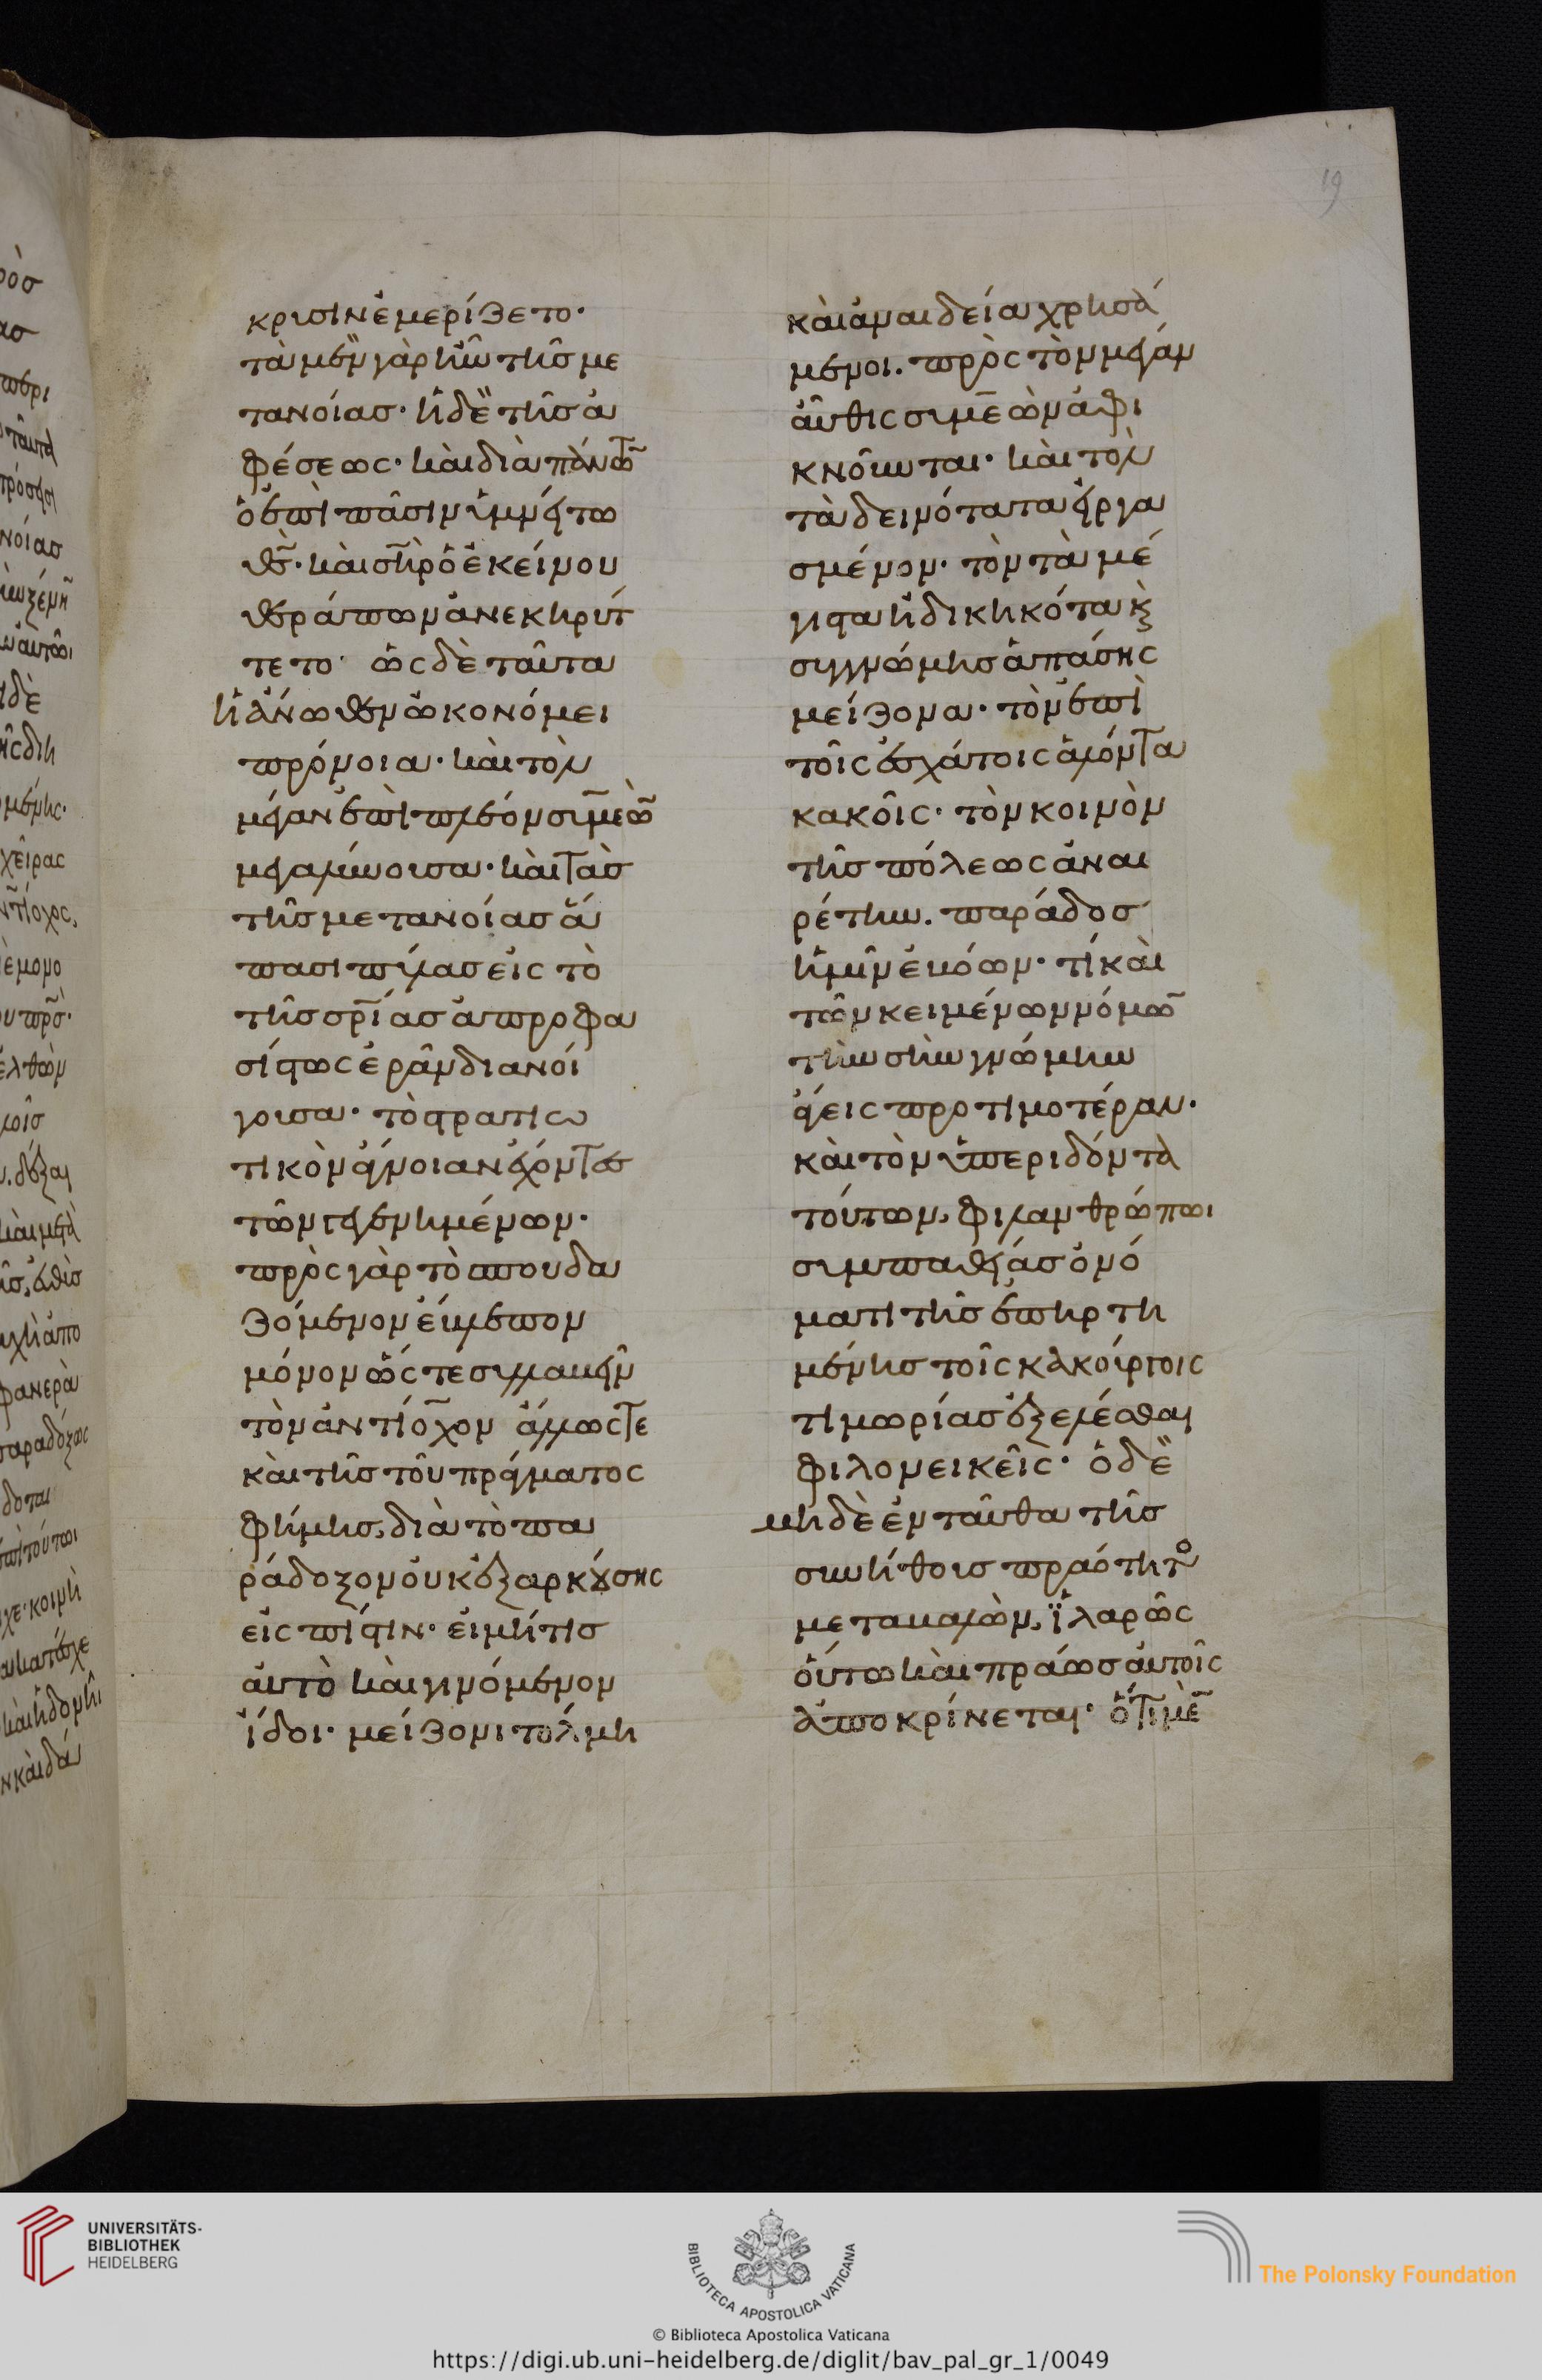 κρισιν ἐμερίζετο·
τὰ μὲν γὰρ ἦν τῆς με
τανοίας· ἡ δὲ τῆς ἀ
φέσεως· καὶ διὰ πάντων
ὁ ἐπὶ πᾶσιν ὑμνεῖτο
θς· καὶ σηρ ὁ ἐκείνου
θεράπων ἀνεκηρύτ
τετο· ὡς δὲ ταῦτα
ἡ ἄνωθεν ὠκονόμει
πρόνοια· καὶ τὸν
μέγαν ἐπὶ πλέον συμεὼν
μεγαλύνουσα· καὶ τὰς
τῆς μετανοίας ἅ
πασι πύλας εἰς τὸ
τῆς σρίας ἀπροφα
σίστως ἐρᾶν διανοί
γουσα· τὸ στρατιω
τικὸν ἄγνοιαν ἔχοντες
τῶν γεγενημένων·
πρὸς γὰρ τὸ σπουδα
ζόμενον ἔβλεπον
μόνον ὥς τε συλλαβεῖν
τὸν ἀντίοχον ἄλλως τε
καὶ τῆς τοῦ πράγματος
φήμης, διὰ τὸ πα
ράδοξον οὐκ ἐξαρκούσης
εἰς πίστιν· εἰ μή τις
αὐτὸ καὶ γινόμενον
ἴδοι· μείζονι τόλμη
19
καὶ ἀναιδεία χρησά
μενοι. πρὸς τὸν μέγαν
αὖθις συμεὼν ἀφι
κνοῦνται· καὶ τὸν
τὰ δεινότατα εἰργα
σμένον· τὸν τὰ μέ
γιστα ἠδικηκότα ϗ
συγγνώμης ἁπάσης
μείζονα· τὸν ἐπὶ
τοῖς ἐσχάτοις ἁλόντα
κακοῖς· τὸν κοινὸν
τῆς πόλεως ἀναι
ρέτην. παράδος
ἡμῖν ἐβόων· τί καὶ
τῶν κειμένων νόμων
τὴν σὴν γνώμην
ἄγεις προτιμοτέραν·
καὶ τὸν ὑπεριδόντα
τούτων, φιλανθρώπωι
συμπαθείας ὀνό
ματι τῆς ἐπηρτη
μένης τοῖς κακούργοις
τιμωρίας ἐξελέσθαι
φιλονεικεῖς· ὁ δὲ
μηδὲ ἐνταῦθα τῆς
συνήθους πραότητος
μεταβαλὼν, ἱλαρῶς
οὕτω καὶ πράως αὐτοῖς
ἀποκρίνεται· ὅτι μὲν
UNIVERSITÄTS-
BIBLIOTHEK
HEIDELBERG
BIBLIOTECA APOSTOLICA VATICANA
The Polonsky Foundation
© Biblioteca Apostolica Vaticana
https://digi.ub.uni-heidelberg.de/diglit/bav_pal_gr_1/0049